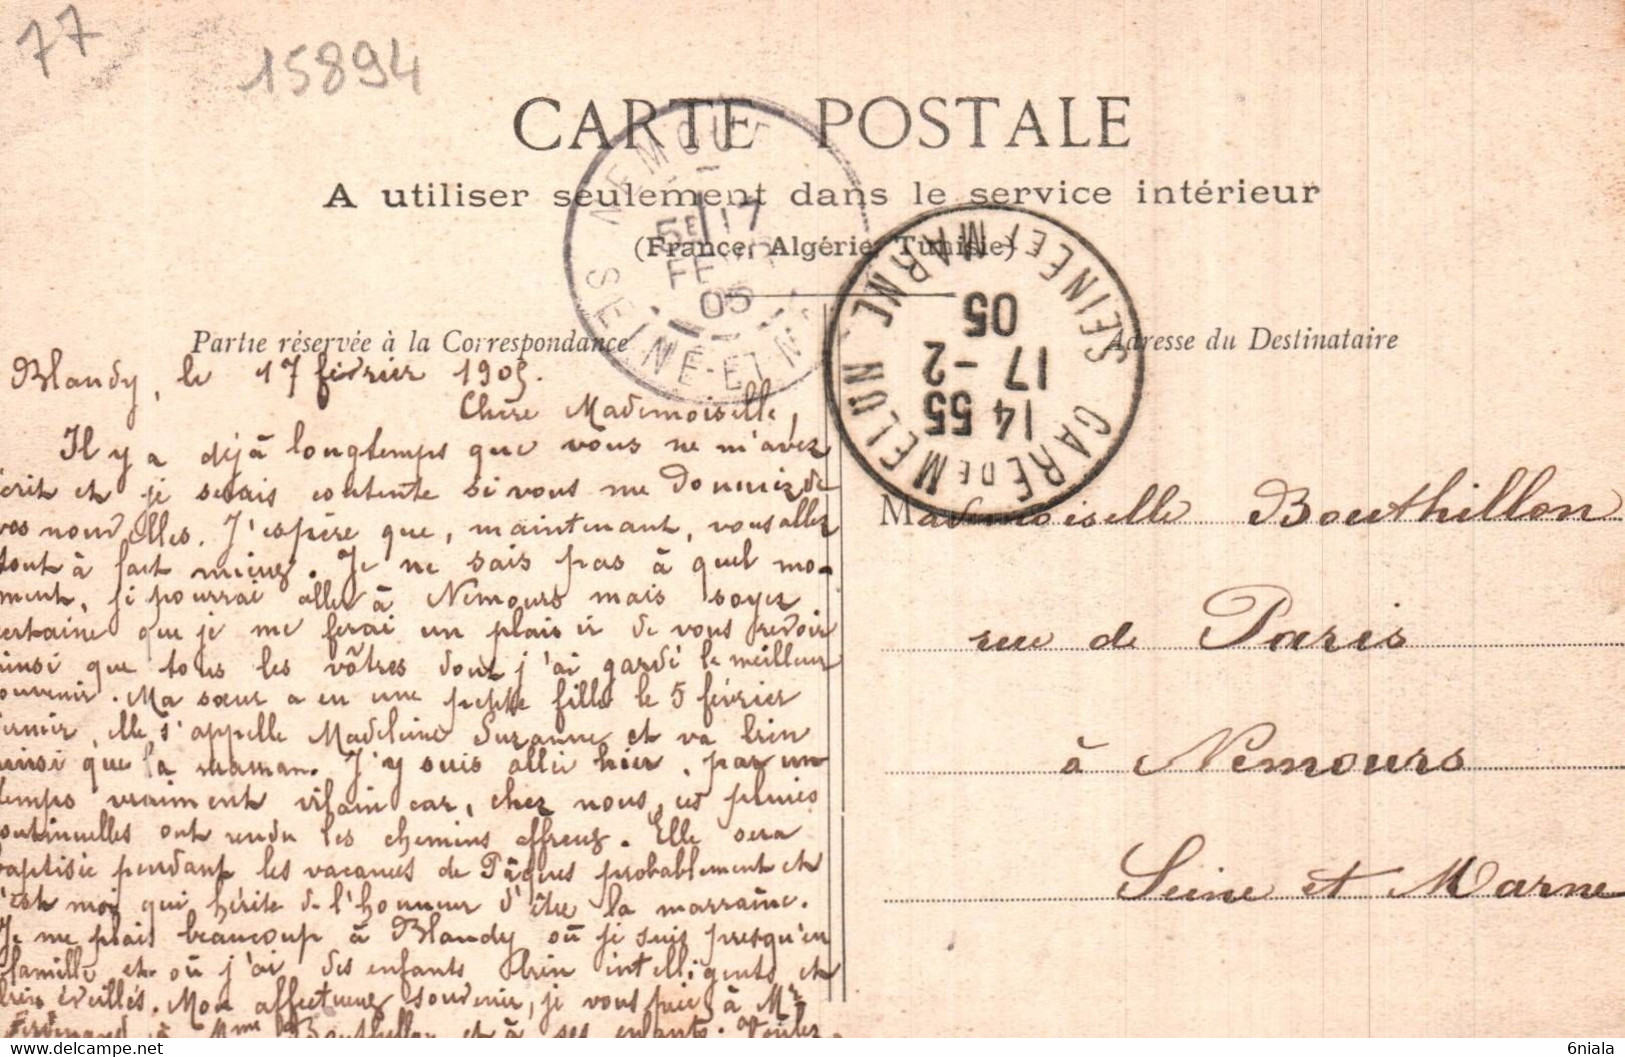 77
15894
CARTE POSTALE
A utiliser seulement dans le service intérieur
(France, Algérie, Tunisie)
NEMOURS SEINE-ET-M
5E 17
FEVR
05
GARE DE MELUN SEINE ET MARNE
14 55
17 -2
05
Partie réservée à la Correspondance
Adresse du Destinataire
Blandy, le 17 février 1905.
Chère Mademoiselle,
Il y a déjà longtemps que vous ne m'avez
écrit et je serais contente si vous me donniez de
vos nouvelles. J'espère que, maintenant, vous allez
tout à fait mieux. Je ne sais pas à quel mo-
ment, je pourrai aller à Nemours mais soyez
certaine que je me ferai un plaisir de vous revoir
ainsi que tous les vôtres dont j'ai gardé le meilleur
souvenir. Ma sœur a eu une petite fille le 5 février
dernier, elle s'appelle Madeleine Suzanne et va bien
ainsi que la maman. J'y suis allée hier, par un
temps vraiment vilain car, chez nous, ces pluies
continuelles ont rendu les chemins affreux. Elle sera
baptisée pendant les vacances de Pâques probablement et
c'est moi qui hérite de l'honneur d'être la marraine.
Je me plais beaucoup à Blandy où je suis presqu'en
famille et où j'ai des enfants bien intelligents et
bien éveillés. Mon affectueux souvenir, je vous prie, à Mr
Ferdinand, à Mme Bouthillon et à ses enfants. Voulez
Mademoiselle Bouthillon
rue de Paris
à Nemours
Seine et Marne
6niala